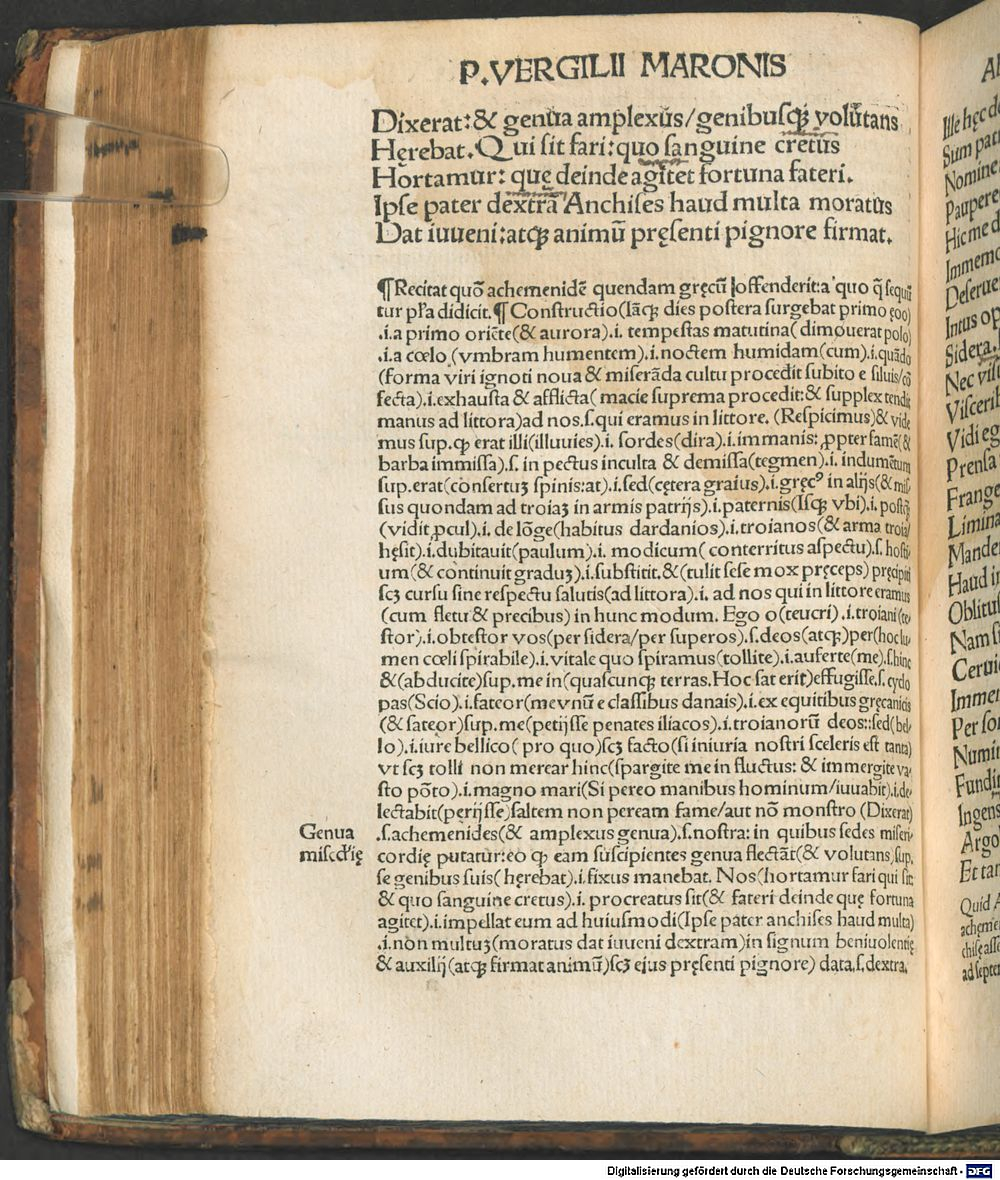 P.VERGILII MARONIS
Dixerat:& genua amplexus/genibusqꝫ volutans
Hęrebat.Qui sit fari:quo sanguine cretus
Hortamur: quę deinde agitet fortuna fateri.
Ipse pater dextrā Anchises haud multa moratus
Dat iuueni:atqꝫ animū pręsenti pignore firmat.
¶Recitat quō achemenidē quendam gręcū offenderit:a quo q̄ sequū
tur pl'ra didicit.¶Constructio(Iāqꝫ dies postera surgebat primo ęoo)
.i.a primo oriēte(& aurora).i. tempestas matutina(dimouerat polo)
.i.a cœlo (vmbram humentem).i.noctem humidam(cum).i.quādo
(forma viri ignoti noua & miserāda cultu procedit subito e siluis/cō
fecta).i.exhausta & afflicta( macie suprema procedit:& supplex tendit
manus ad littora)ad nos.s.qui eramus in littore. (Respicimus)& vide
mus sup.qꝫ erat illi(illuuies).i. sordes(dira).i.immanis: ꝓpter famē(&
barba immissa).s. in pectus inculta & demissa(tegmen).i. indumētum
sup.erat(consertuꝫ spinis:at).i.sed(cętera graius).i.gręcꝰ in alijs(& mis
sus quondam ad troiaꝫ in armis patrijs).i.paternis(Isqꝫ vbi).i.postqꝫ
(vidit ꝓcul).i. de lōge(habitus dardanios).i.troianos(& arma troia/
hęsit).i.dubitauit(paulum).i. modicum( conterritus aspectu).s. hosti
um(& continuit graduꝫ).i.substitit.&(tulit sese mox pręceps) pręcipiti
scꝫ cursu sine respectu salutis(ad littora).i. ad nos qui in littore eramus
(cum fletu & precibus) in hunc modum. Ego o(teucri).i.troiani(te
stor).i.obtestor vos(per sidera/per superos).s.deos(atqꝫ)per(hoc lu
men cœli spirabile).i.vitale quo spiramus(tollite).i.auferte(me).s.hinc
&(abducite)sup.me in(quascunqꝫ terras.Hoc sat erit)effugisse.s.cyclo
pas(Scio).i.fateor(me vnū e classibus danais).i.ex equitibus gręcanicis
(& fateor)sup.me(petijsse penates iliacos).i.troianorū deos::sed(bel
lo).i.iure bellico( pro quo)scꝫ facto(si iniuria nostri sceleris est tanta)
vt scꝫ tolli non merear hinc(spargite me in fluctus: & immergite va
sto pōto).i.magno mari(Si pereo manibus hominum/iuuabit).i.de
lectabit(perijsse)saltem non peream fame/aut nō monstro (Dixerat)
.s.achemenides(& amplexus genua).s.nostra: in quibus sedes miseri
cordię putatur:eo qꝫ eam suscipientes genua flectāt(& volutans)sup.
se genibus suis( hęrebat).i.fixus manebat. Nos(hortamur fari qui sit:
& quo sanguine cretus).i. procreatus sit(& fateri deinde quę fortuna
agitet).i.impellat eum ad huiusmodi(Ipse pater anchises haud multa)
.i.non multuꝫ(moratus dat iuueni dextram)in signum beniuolentię
& auxilij(atqꝫ firmat animū)scꝫ ejus pręsenti pignore) data.s.dextra.
Genua
misc̄dię
Ille hęc
Sum
Nomine
Hic me
Intus
Sidera.
Nec
Vidi
Prensa
Frange
Haud
Nam
Per
Ingens
Argo
Et
Quid
Digitalisierung gefördert durch die Deutsche Forschungsgemeinschaft - DFG